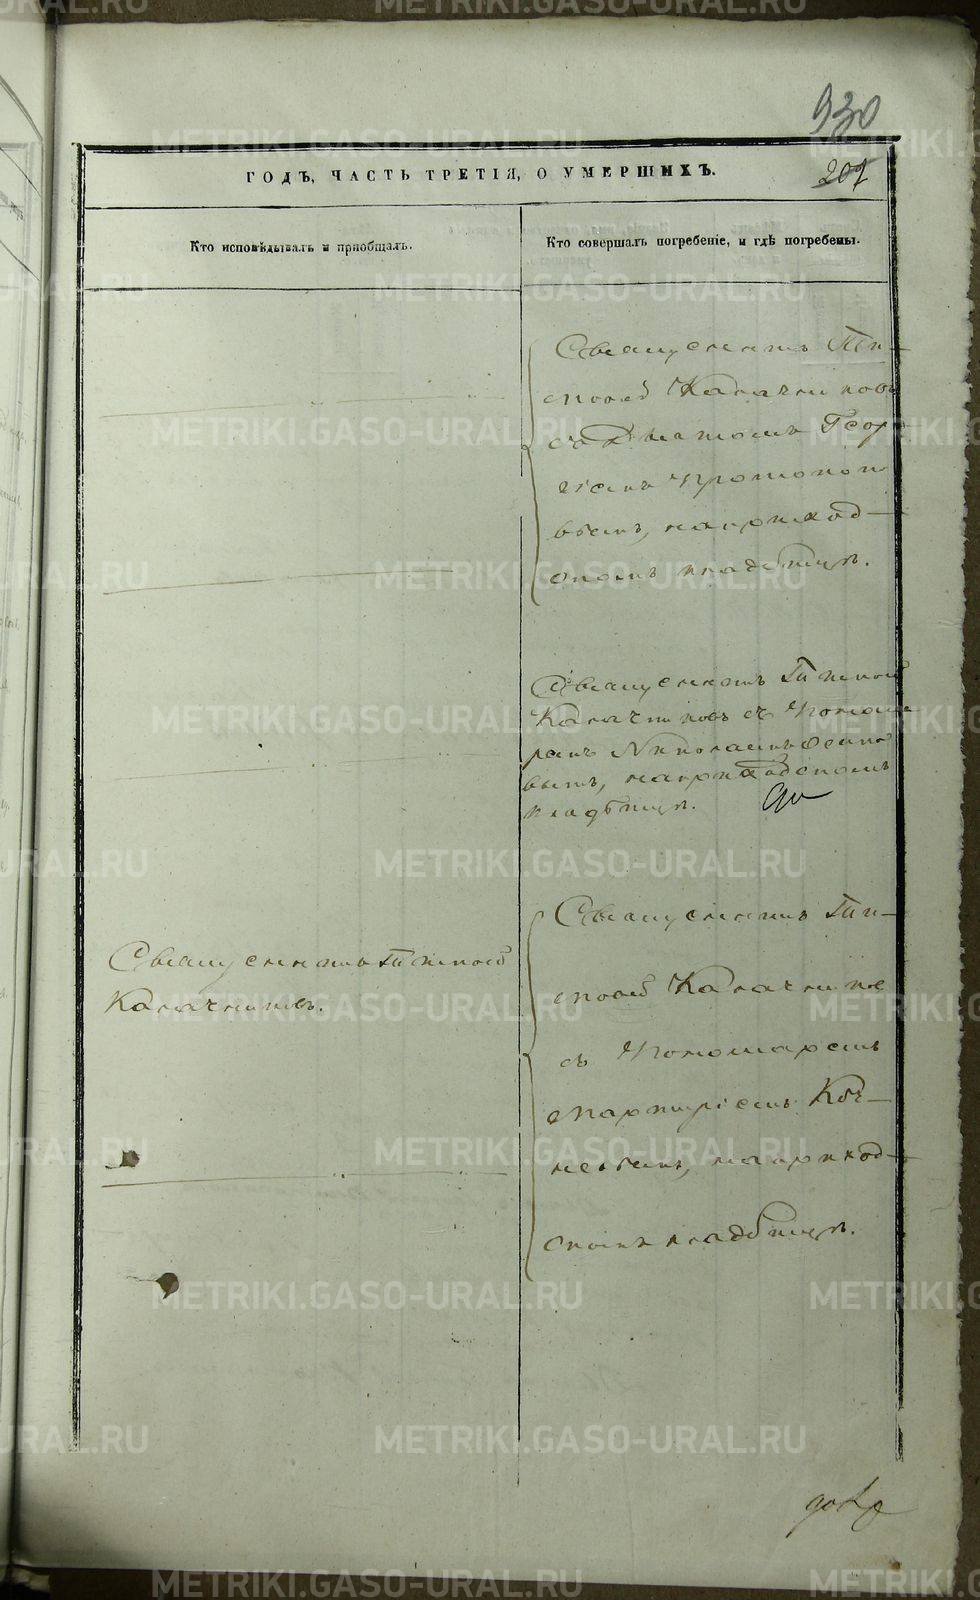 930
201
ГОДЪ, ЧАСТЬ ТРЕТІЯ, О УМЕРШИХЪ.
Кто исповѣдывалъ и пріобщалъ.
Кто совершалъ погребеніе, и гдѣ погребены.
Священникъ Ти-
моѳей Калачниковъ
съ Дьячкомъ Геор
гіемъ Протопопо
вымъ, на приход-
скомъ кладбищѣ.
Священникъ Тимоѳей
Калачниковъ съ Понома
ремъ Николаемъ
вымъ, на приходскомъ
кладбищѣ.
Священникъ Тимоѳей
Калачниковъ.
Священникъ Ти-
моѳей Калачниковъ
съ Пономаремъ
на приход-
скомъ кладбищѣ.
METRIKI.GASO-URAL.RU